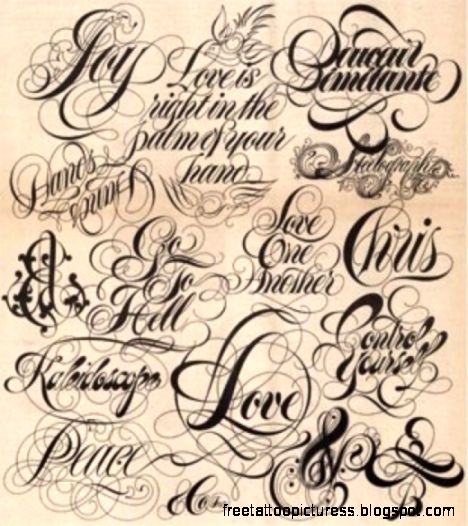 Joy
Love is
right in the
palm of your
hand
Hands
Love
One
Another
Chris
Go
To
Hell
Control
Yourself
Kaleidoscope
Love
Peace
&
freetattoopicturess.blogspot.com